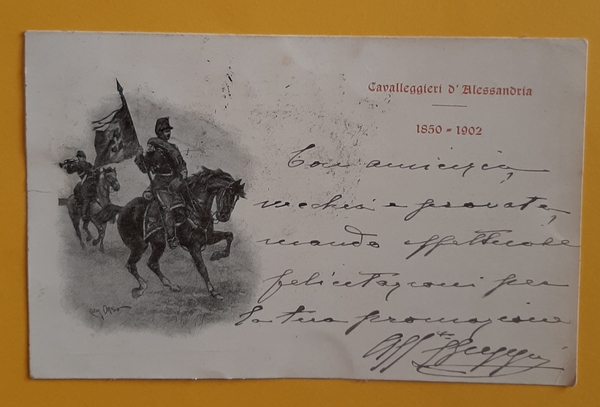 Cavalleggieri d'Alessandria
1850 - 1902
Con amicizia,
vechia e provata,
mando affettuose
felicitazioni per
la tua promozione
Aff.to